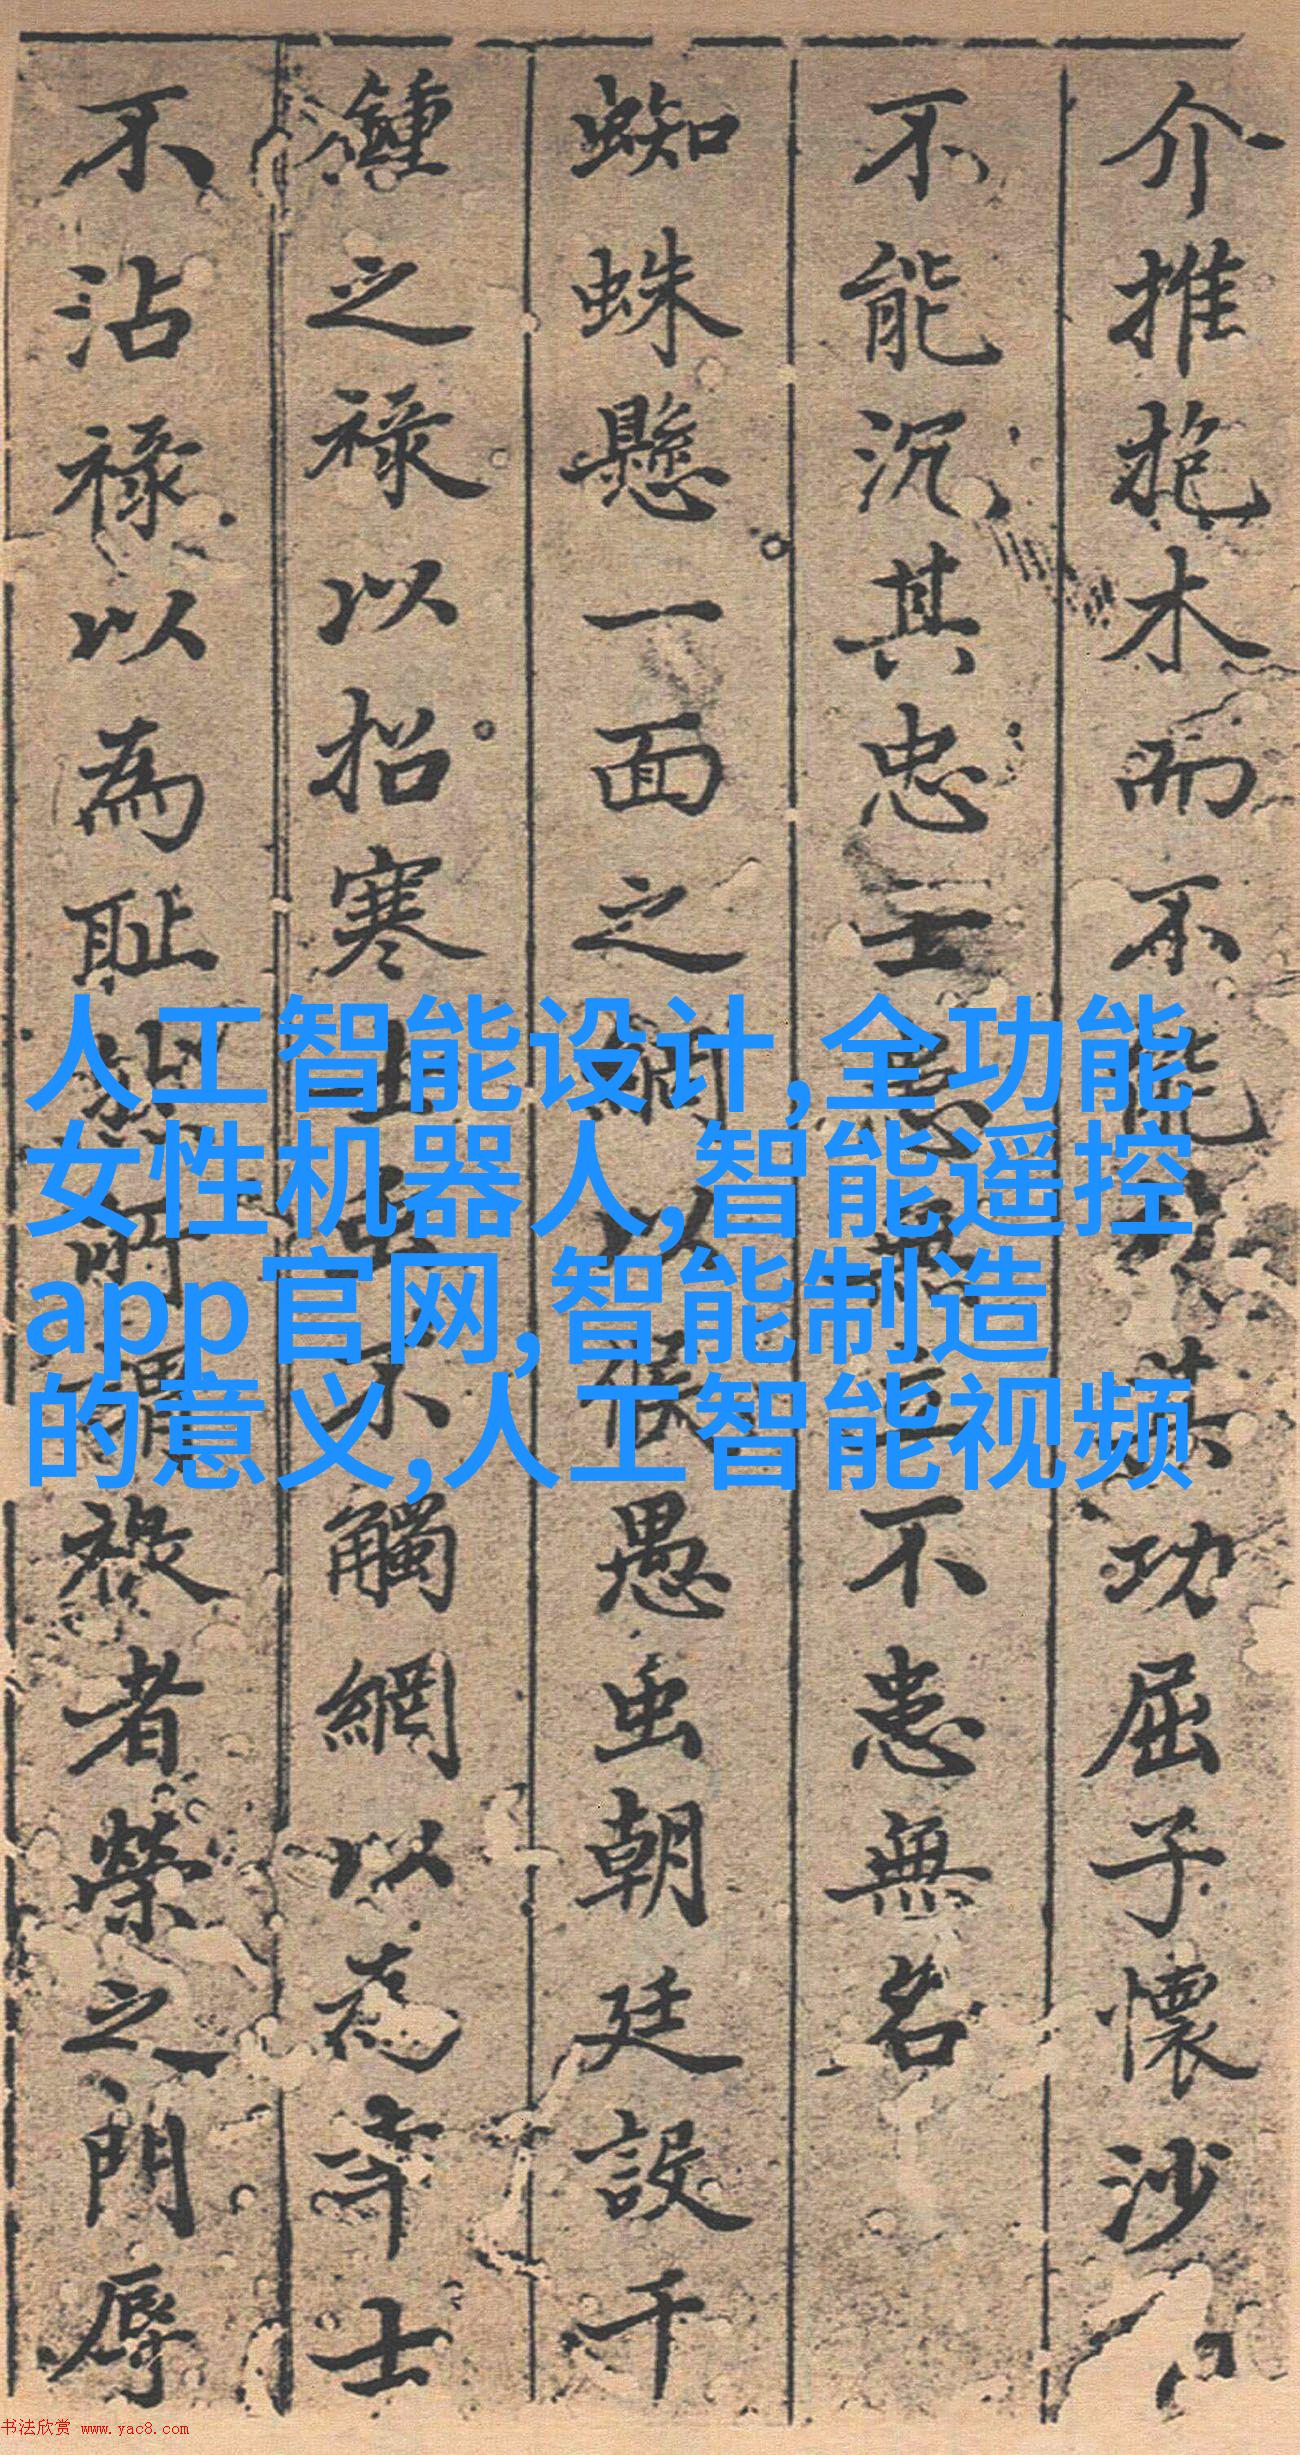 介推抱木而不能
功屈子懷沙
不能沉其忠士
不患無名
蜘蛛懸一面之網以候愚虫朝廷設千
鍾之祿以招寒士虫不觸網以為
士
不沾祿以為恥
祿者榮之門辱
人工智能设计,全功能
女性机器人,智能遥控
app官网,智能制造
的意义,人工智能视频
书法欣赏 www.yac8.com